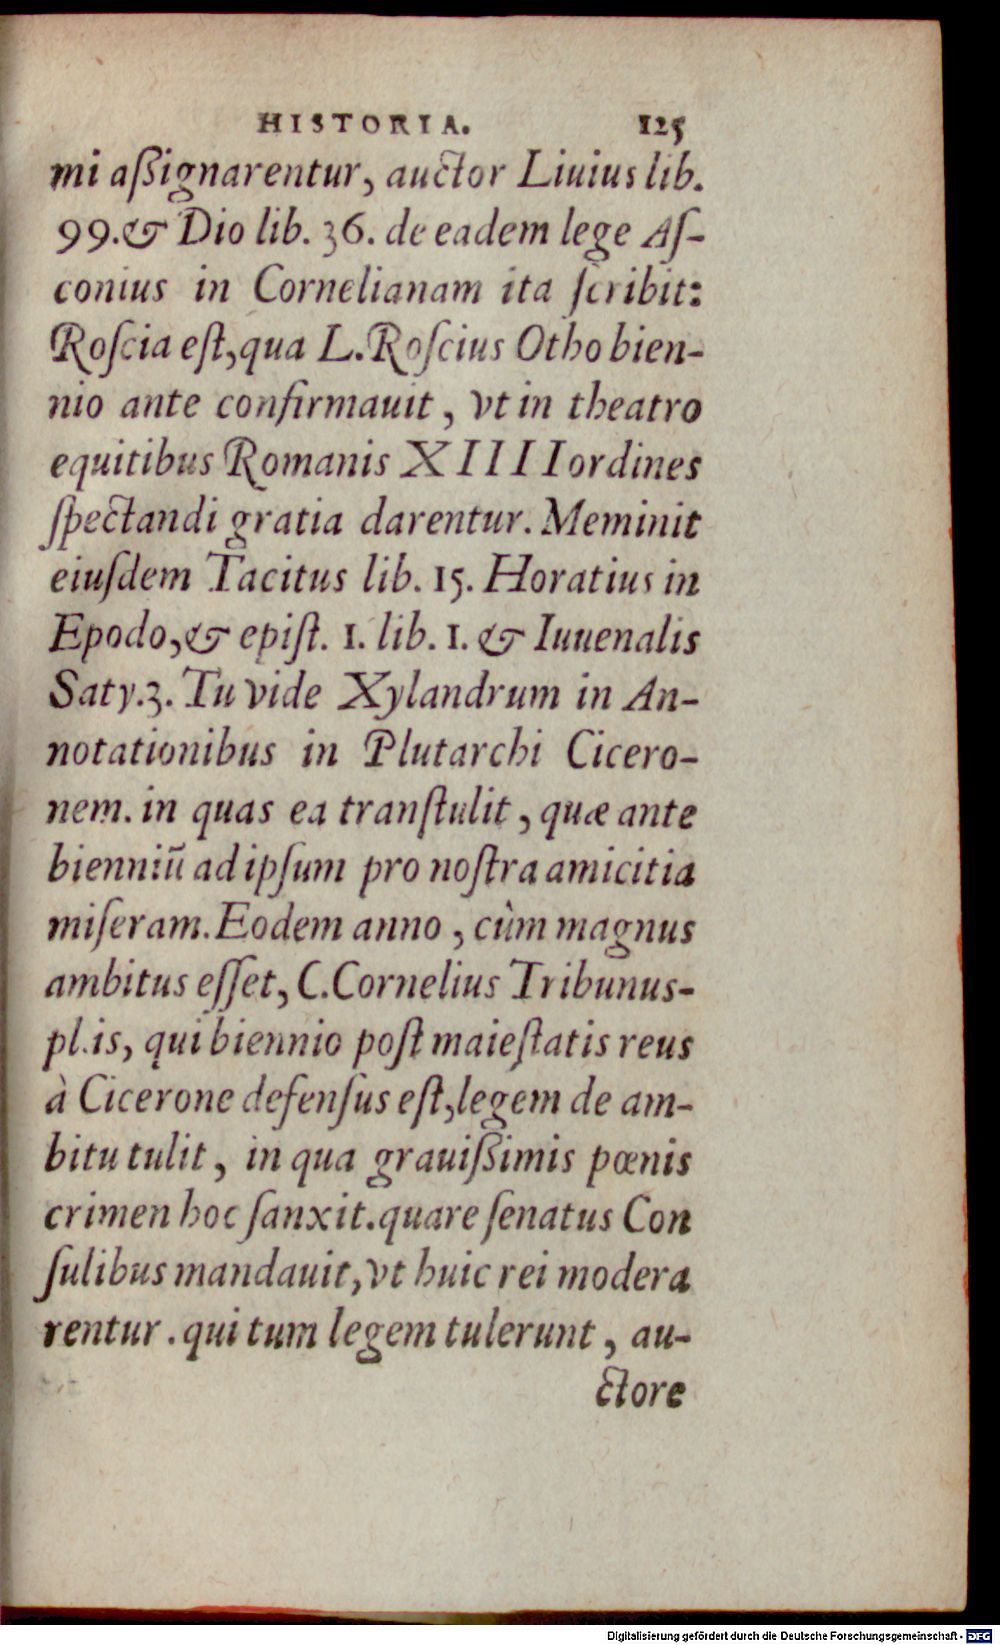 HISTORIA. 125
mi aßignarentur, auctor Liuius lib.
99.& Dio lib. 36. de eadem lege Aſ-
conius in Cornelianam ita ſcribit:
Roſcia eſt,qua L.Roſcius Otho bien-
nio ante confirmauit, vt in theatro
equitibus Romanis XIIII ordines
ſpectandi gratia darentur. Meminit
eiuſdem Tacitus lib. 15. Horatius in
Epodo,& epiſt. 1. lib. 1. & Iuuenalis
Saty.3. Tu vide Xylandrum in An-
notationibus in Plutarchi Cicero-
nem. in quas ea tranſtulit, quæ ante
bienniũ ad ipſum pro noſtra amicitia
miſeram. Eodem anno, cùm magnus
ambitus eſſet, C.Cornelius Tribunus-
pl.is, qui biennio poſt maieſtatis reus
à Cicerone defenſus eſt,legem de am-
bitu tulit, in qua grauißimis pœnis
crimen hoc ſanxit.quare ſenatus Con
ſulibus mandauit,vt huic rei modera
rentur. qui tum legem tulerunt, au-
ctore
Digitalisierung gefördert durch die Deutsche Forschungsgemeinschaft - DFG